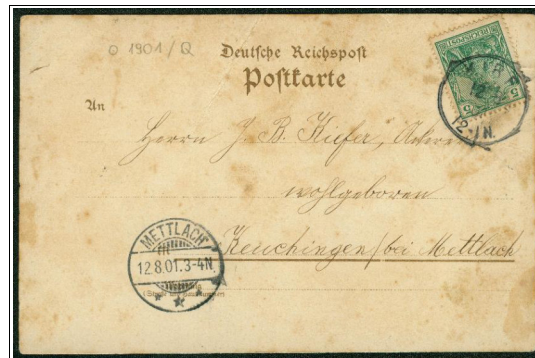 o 1901/Q
Deutsche Reichspost
Postkarte
An
Herrn J. B. Kiefer,
wohlgeboren
Keuchingen/bei Mettlach
METTLACH
12.8.01.3-4N
5 REICHSPOST 5
12-1N.